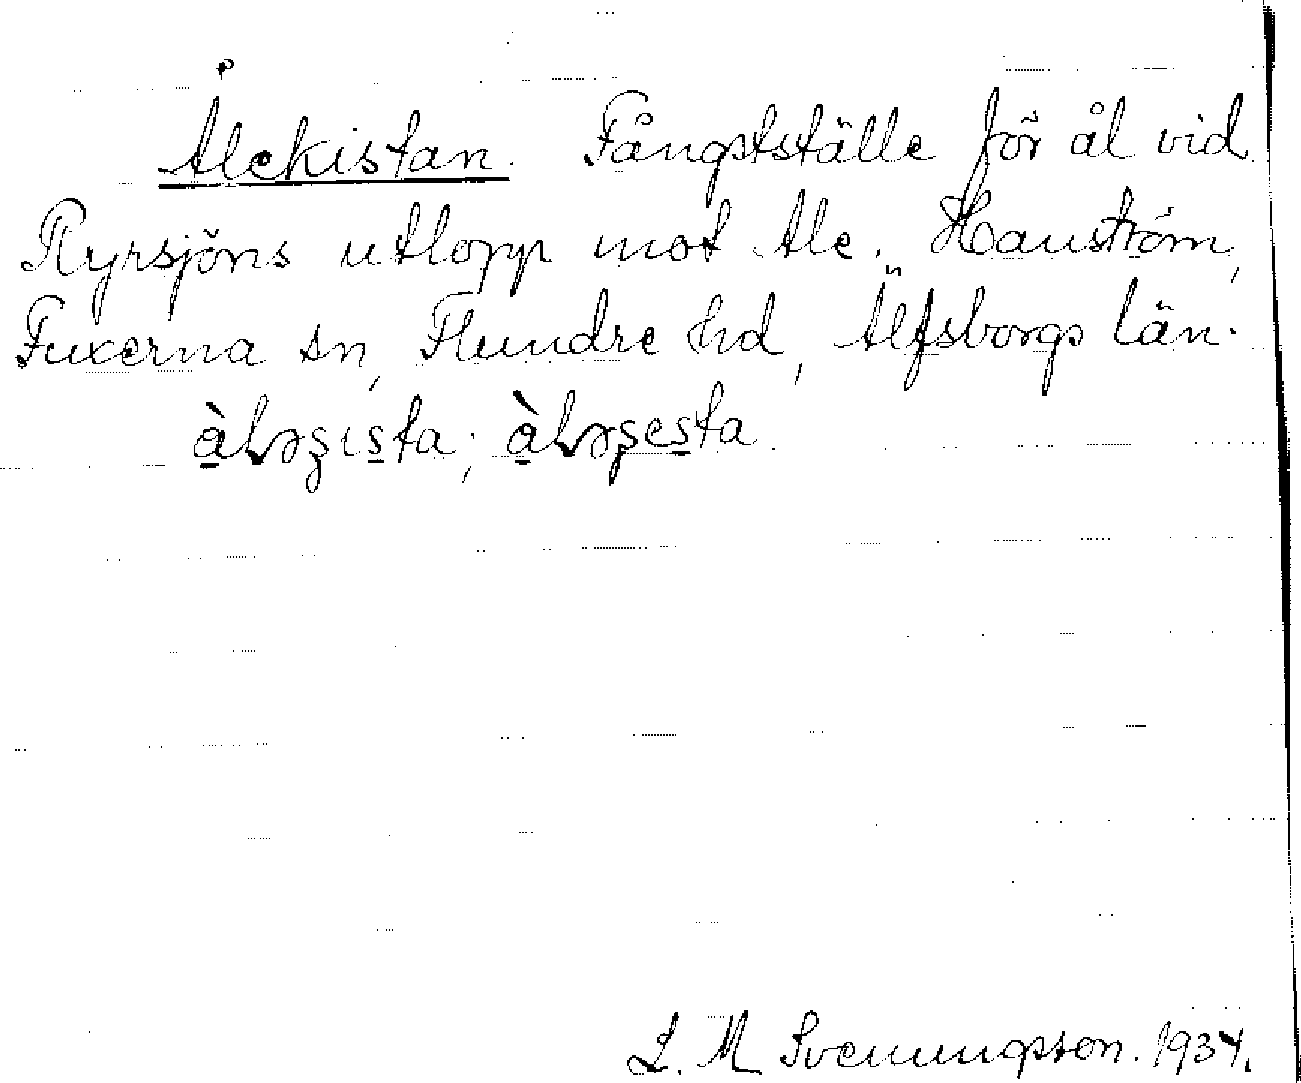 Ålekistan. Fångstställe för ål vid
Ryrsjöns utlopp mot Ale. Hanström,
Fuxerna sn, Flundre hd, Älfsborgs län.
L. M. Svenungsson. 1934.